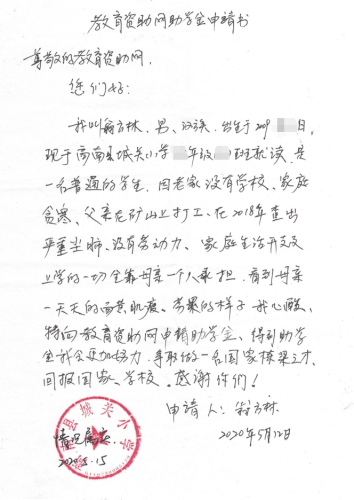 教育资助网助学金申请书
尊敬的教育资助网：
您们好：
我叫翁方林，男、汉族、出生于2009 日，
现于商南县城关小学 年级 班就读，是
一名普通的学生，因老家没有学校、家庭
贫寒、父亲在矿山上打工、在2018年查出
严重尘肺、没有劳动力、家庭生活开支及
上学的一切全靠母亲一个人承担，看到母亲
一天天的面黄肌瘦、劳累的样子我心酸，
特向教育资助网申请助学金、得到助学
金我会更加努力，争取做一名国家栋梁之才，
回报国家、学校。感谢你们！
申请人：翁方林
2020年5月12日
商南县城关小学
情况属实
2020.5.15